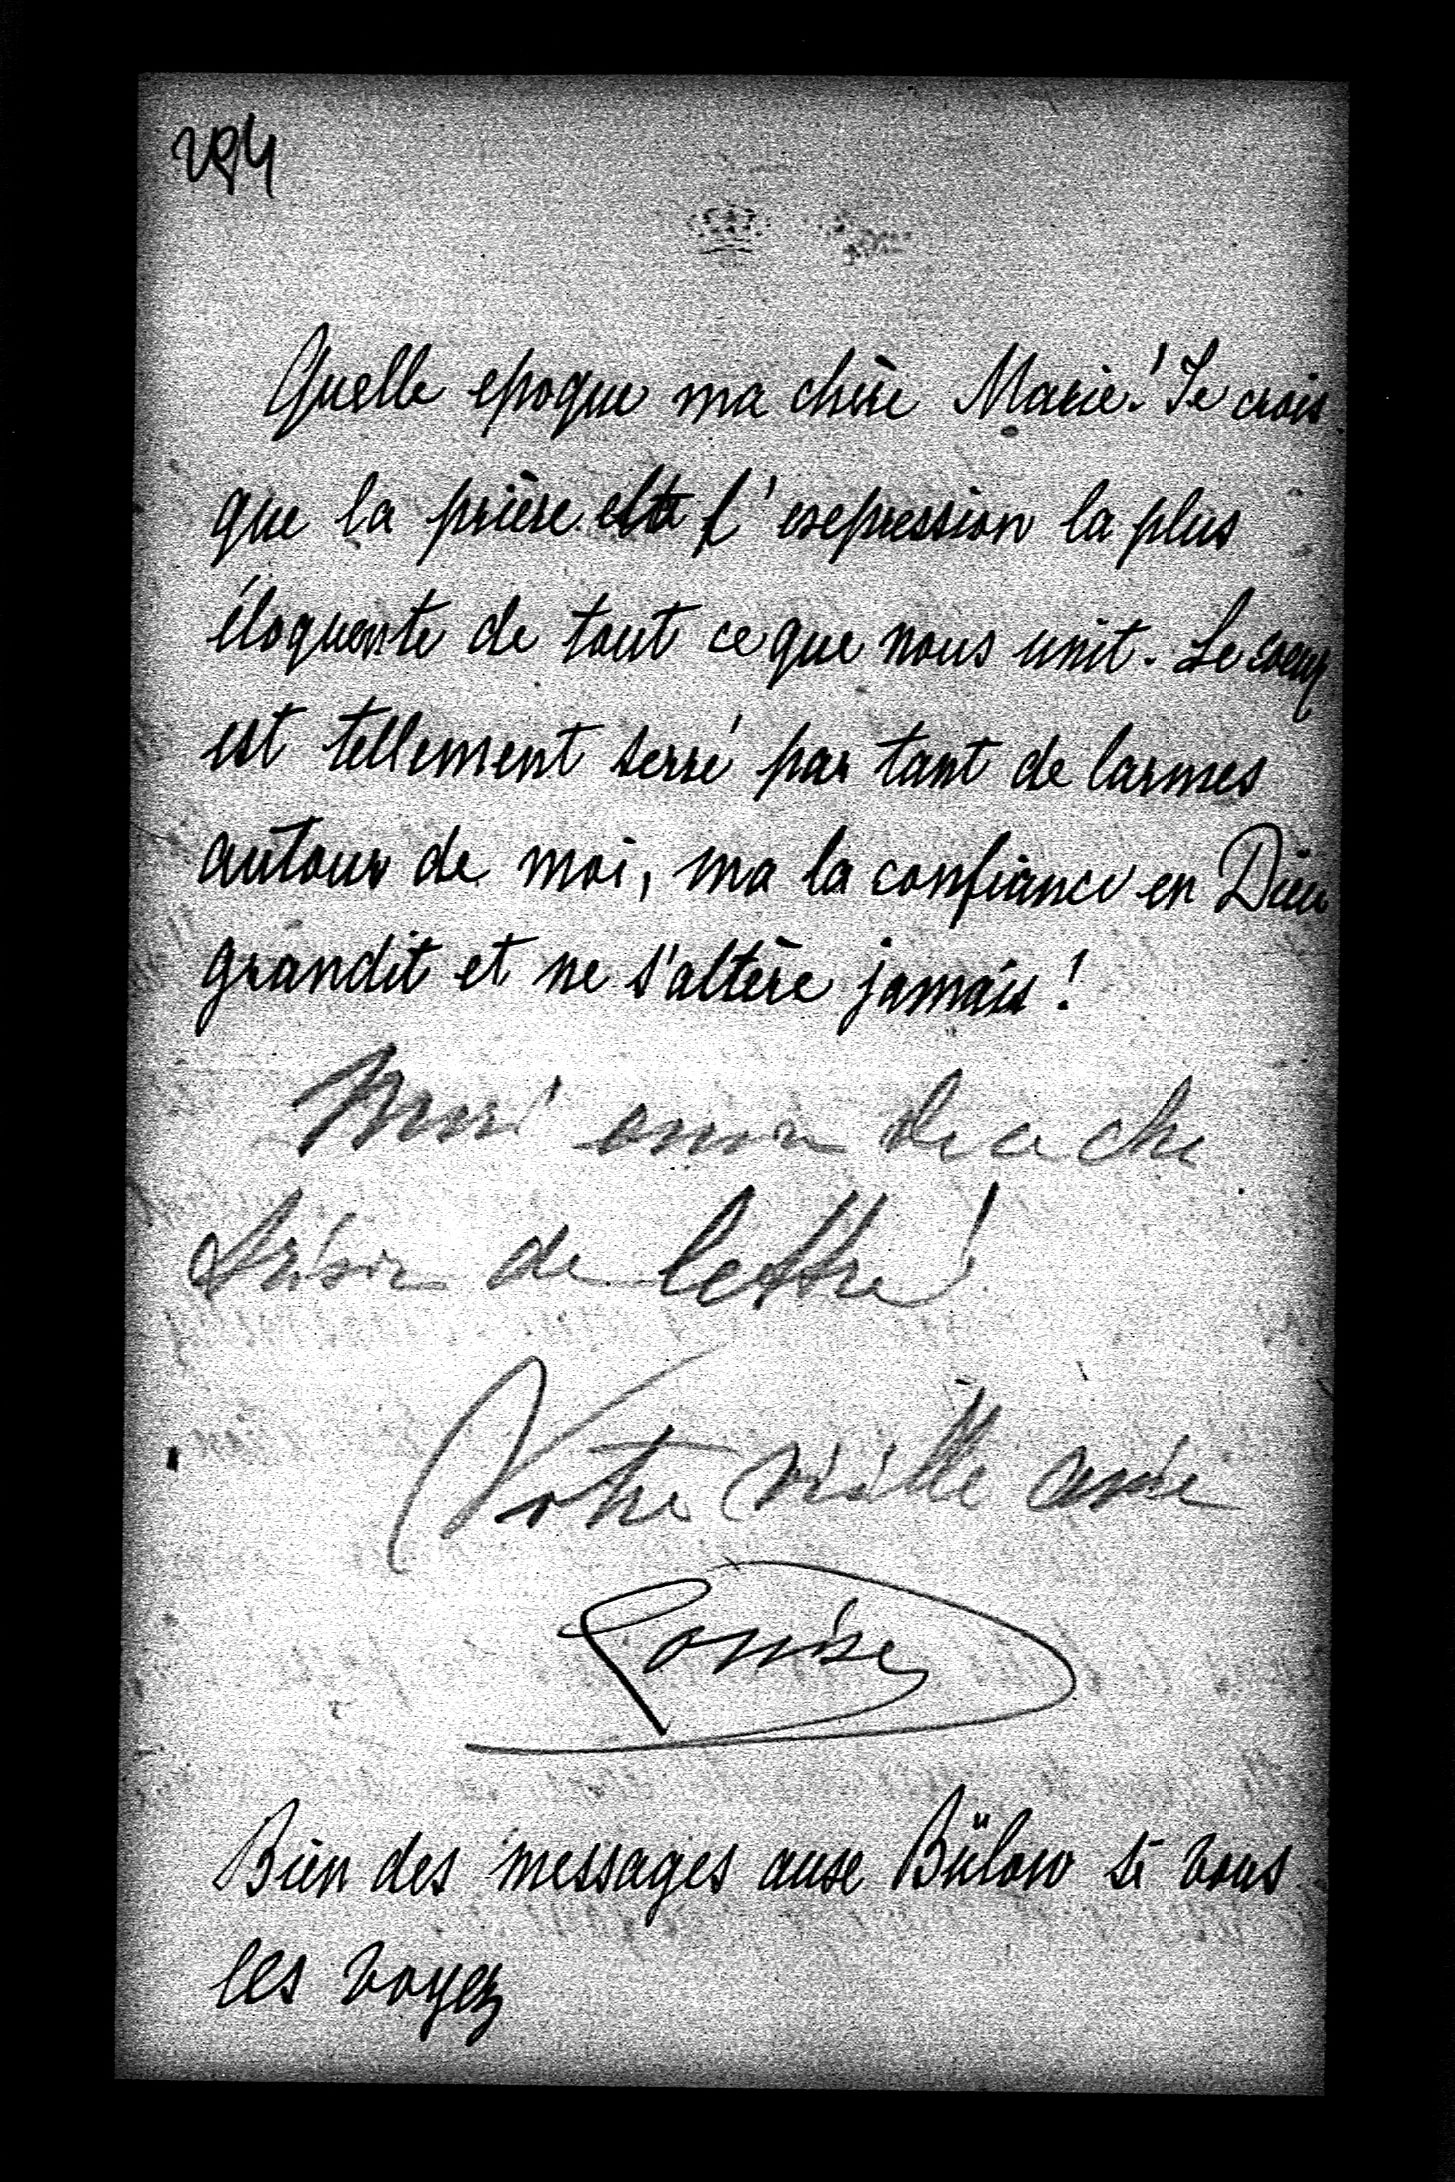 294
Quelle epoque ma chère Marie! Je crois
que la prière est l'expression la plus
éloquente de tout ce que nous unit. Le coeur
est tellement serré par tant de larmes
autour de moi, ma la confiance en Dieu
grandit et ne s'altère jamais!
de ce cher
de lettre!
Votre vieille amie
Louise
Bien des messages aux Bülow si vous
les voyez